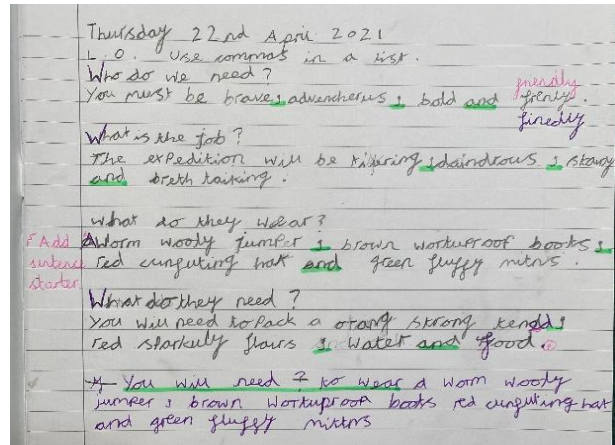 Thursday 22nd April 2021
L.O. Use commas in a list.
Who do we need?
You must be brave, advencherus, bold and frenly.
friendly
finedly
What is the job?
The expedition will be tiring, daindrous, skary
and breth taiking.
what do they wear?
A Worm wooly jumper, brown workuproof boots,
Add sentence starter
red cunguting hat and green fluffy mitns.
What do they need?
You will need to pack a orang strong tend,
red sparkuly flairs, water and food.
You will need to wear a worm wooly
jumper, brown workuproof boots red cunguting hat
and green fluffy mittns